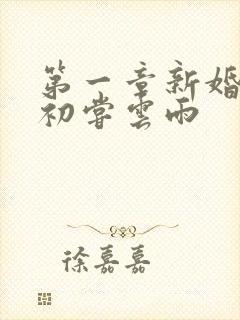 第一章新婚
初嘗雲雨
徐嘉嘉